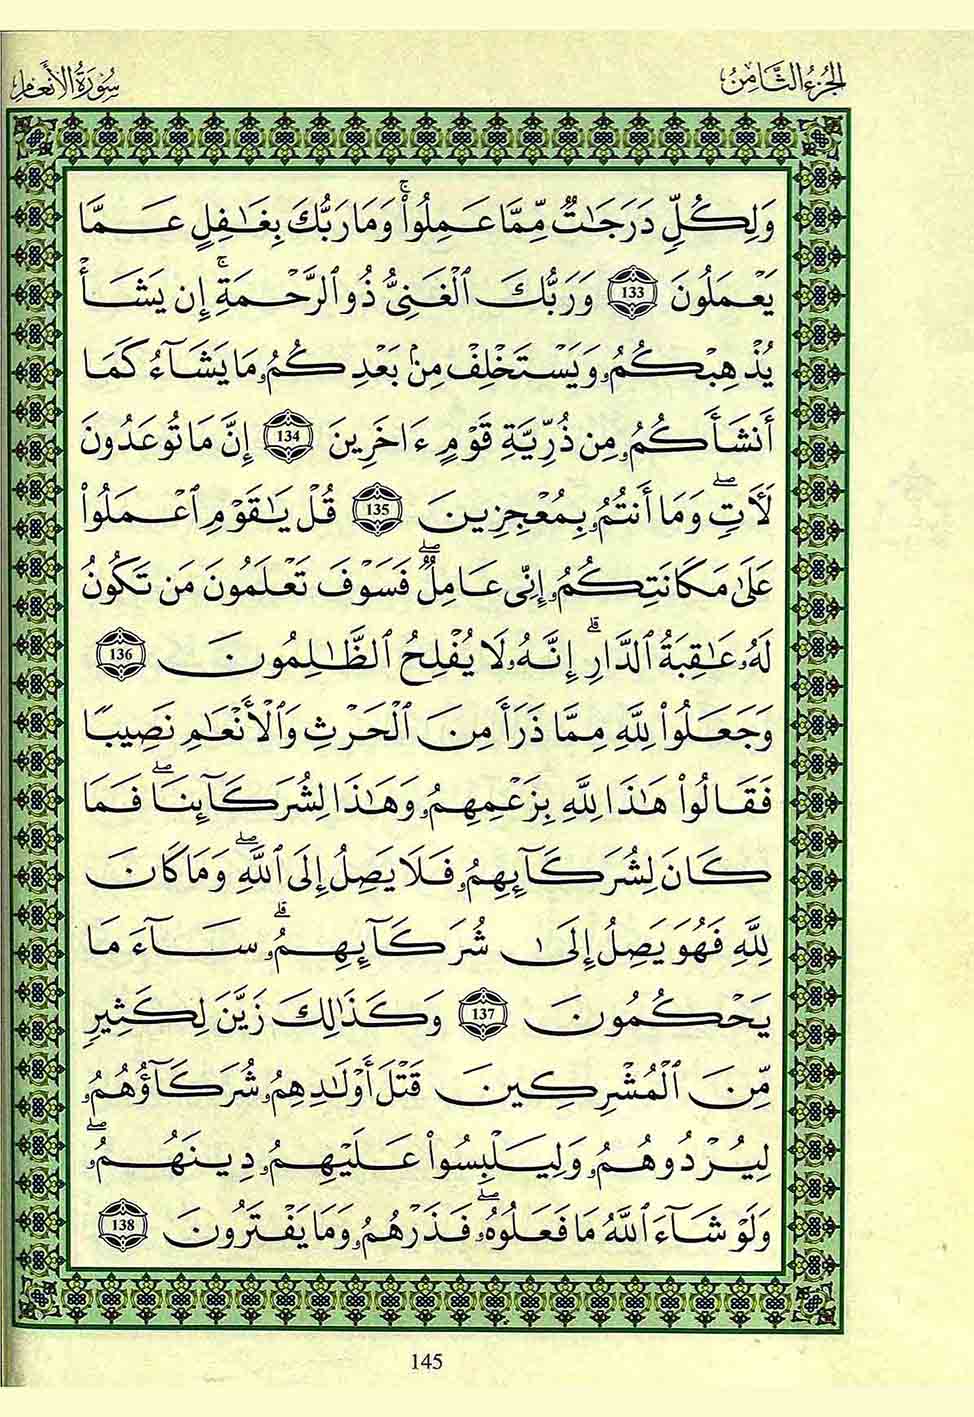 الجزء الثامن
سورة الأنعام
وَلِكُلٍّ دَرَجَٰتٌ مِّمَّا عَمِلُواْ ۚ وَمَا رَبُّكَ بِغَٰفِلٍ عَمَّا
يَعْمَلُونَ 133 وَرَبُّكَ ٱلْغَنِىُّ ذُو ٱلرَّحْمَةِ ۚ إِن يَشَأْ
يُذْهِبْكُمُۥ وَيَسْتَخْلِفْ مِنۢ بَعْدِكُمُۥ مَا يَشَآءُ كَمَا
أَنشَأَكُمُۥ مِن ذُرِّيَّةِ قَوْمٍ ءَاخَرِينَ 134 إِنَّ مَا تُوعَدُونَ
لَأٓتٍ ۖ وَمَا أَنتُمُۥ بِمُعْجِزِينَ 135 قُلْ يَٰقَوْمِ ٱعْمَلُواْ
عَلَىٰ مَكَانَتِكُمُۥ إِنِّى عَامِلٌ ۖ فَسَوْفَ تَعْلَمُونَ مَن تَكُونُ
لَهُۥ عَٰقِبَةُ ٱلدَّارِ ۗ إِنَّهُۥ لَا يُفْلِحُ ٱلظَّٰلِمُونَ 136
وَجَعَلُواْ لِلَّهِ مِمَّا ذَرَأَ مِنَ ٱلْحَرْثِ وَٱلْأَنْعَٰمِ نَصِيبًا
فَقَالُواْ هَٰذَا لِلَّهِ بِزَعْمِهِمُۥ وَهَٰذَا لِشُرَكَآئِنَا ۖ فَمَا
كَانَ لِشُرَكَآئِهِمُۥ فَلَا يَصِلُ إِلَى ٱللَّهِ ۖ وَمَا كَانَ
لِلَّهِ فَهُوَ يَصِلُ إِلَىٰ شُرَكَآئِهِمُۥ ۗ سَآءَ مَا
يَحْكُمُونَ 137 وَكَذَٰلِكَ زَيَّنَ لِكَثِيرٍ
مِّنَ ٱلْمُشْرِكِينَ قَتْلَ أَوْلَٰدِهِمُۥ شُرَكَآؤُهُمُۥ
لِيُرْدُوهُمُۥ وَلِيَلْبِسُواْ عَلَيْهِمُۥ دِينَهُمُۥ ۖ
وَلَوْ شَآءَ ٱللَّهُ مَا فَعَلُوهُۥ ۖ فَذَرْهُمُۥ وَمَا يَفْتَرُونَ 138
145